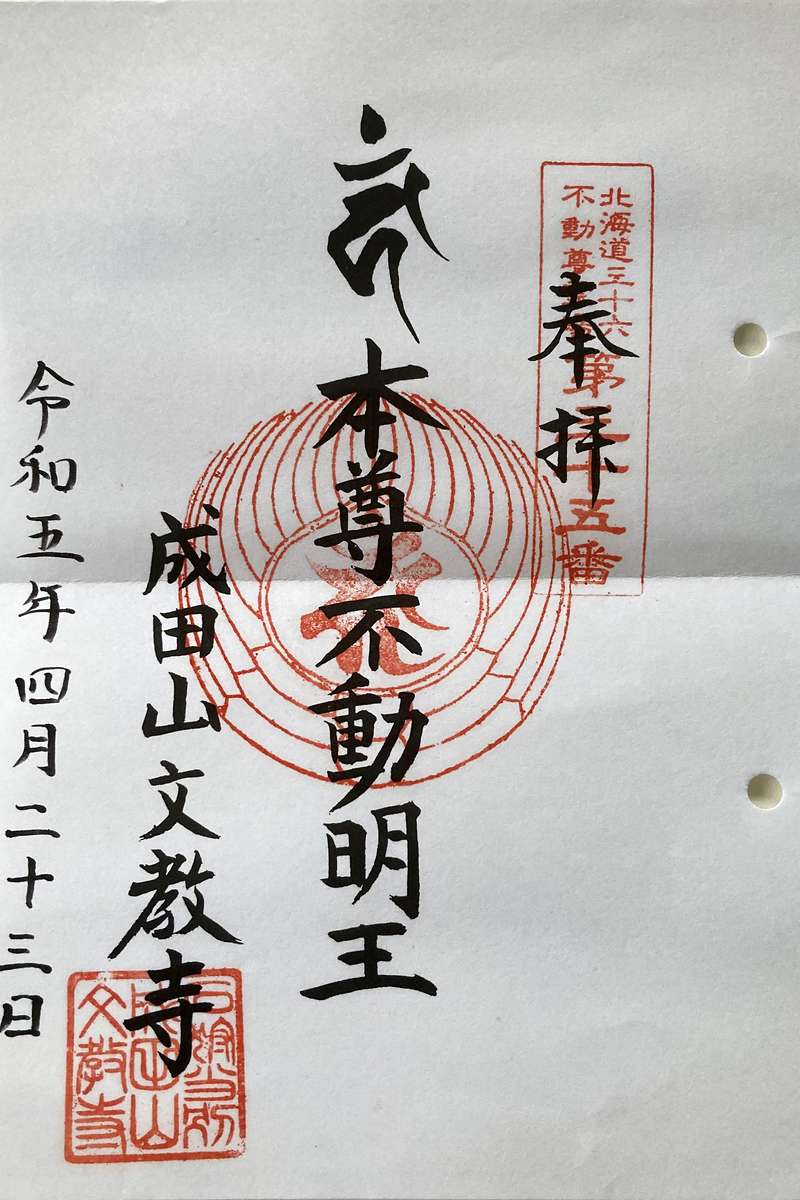 北海道三十六
不動尊
第
五番
奉拝
本尊不動明王
成田山文教寺
令和五年四月二十三日
成田山
文教寺